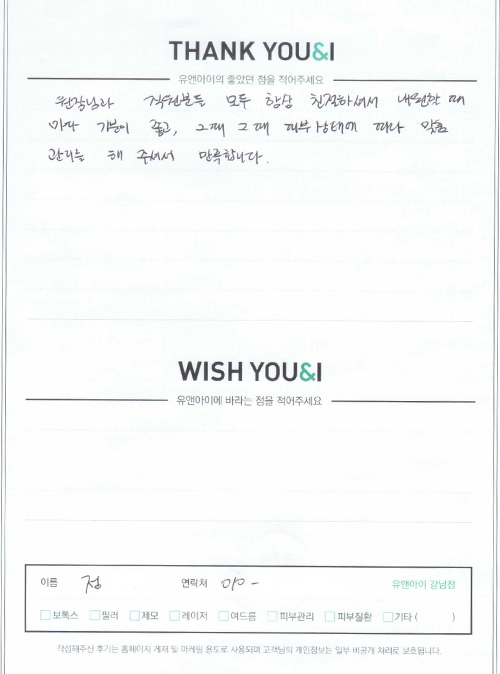 THANK YOU&I
유앤아이의 좋았던 점을 적어주세요
원장님과 직원분들 모두 항상 친절하셔서 내원할 때
마다 기분이 좋고, 그때 그때 피부상태에 따라 맞춤
관리를 해 주셔서 만족합니다.
WISH YOU&I
유앤아이에 바라는 점을 적어주세요
이름 정 연락처 010 -
유앤아이 강남점
보톡스 필러 제모 레이저 여드름 피부관리 피부질환 기타 ( )
작성해주신 후기는 홈페이지 게재 및 마케팅 용도로 사용되며 고객님의 개인정보는 일부 비공개 처리로 보호됩니다.